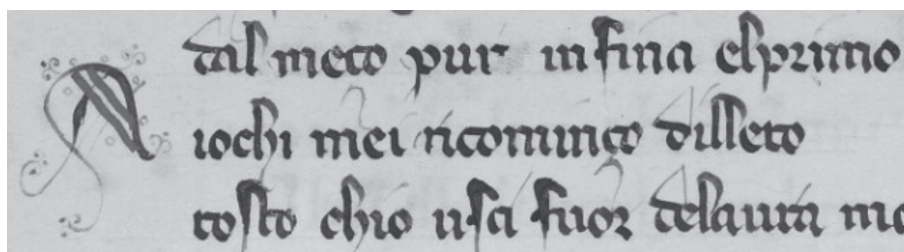 dal meço pur infina elprimo
A iochi mei ricominço dilleto
tosto chio usci fuor delaura mo